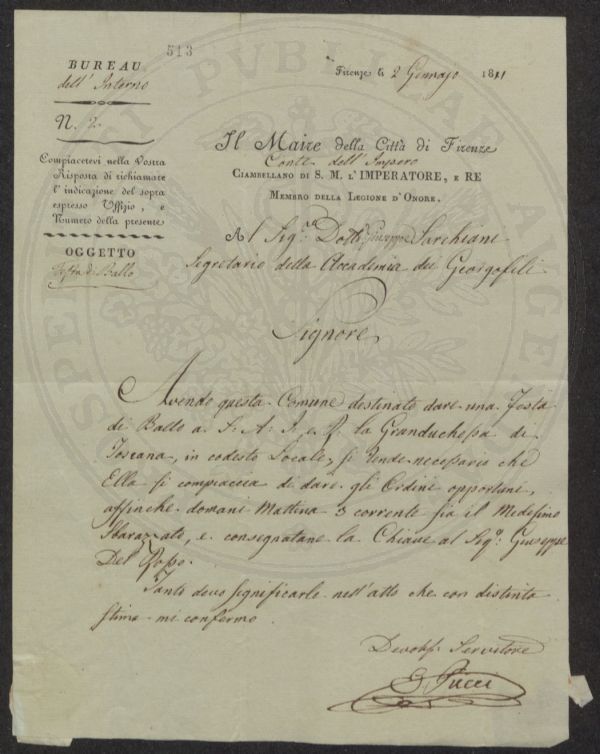 513
BUREAU
dell' Interno
N. 2.
Compiacetevi nella Vostra
Risposta di richiamare
l'indicazione del sopra
espresso Uffizio, e
Numero della presente
OGGETTO
Festa di Ballo
Firenze li 2 Gennajo 1811
Il Maire della Città di Firenze
Conte dell' Impero
CIAMBELLANO DI S. M. L'IMPERATORE, E RE
MEMBRO DELLA LEGIONE D'ONORE.
Al Sig.re Dott. Giuseppe Sarchiani
Segretario della Accademia dei Georgofili
Signore
Avendo questa Comune destinato dare una Festa
di Ballo a S: A: I: e R: la Granduchessa di
Toscana, in codesto Locale, si rende necessario che
Ella si compiaccia di dare gli Ordini opportuni,
affinchè domani Mattina 3 corrente sia il Medesimo
Sbarazzato, e consegnatane la Chiave al Sig.o Giuseppe
Del Rosso.
Tanto devo significarle nell'atto che con distinta
stima mi confermo
Devotiss. Servitore
Pucci